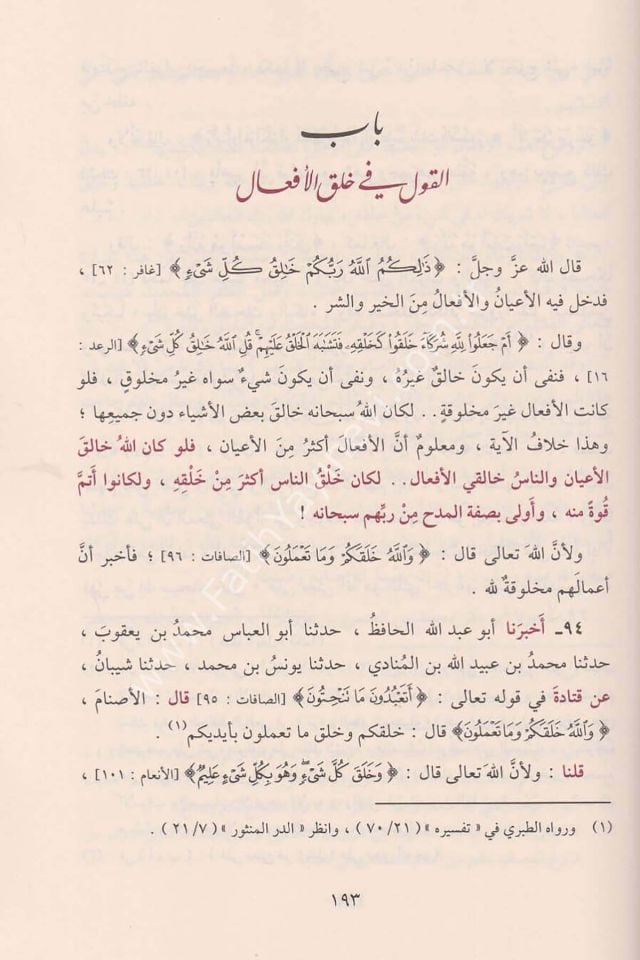 باب
القول في خلق الأفعال
قال الله عزَّ وجلَّ : ﴿ ذَٰلِكُمُ ٱللَّهُ رَبُّكُمْ خَٰلِقُ كُلِّ شَىْءٍ ﴾ [غافر : ٦٢] ،
فدخل فيه الأعيان والأفعالُ مِنَ الخير والشر .
وقال : ﴿ أَمْ جَعَلُوا۟ لِلَّهِ شُرَكَآءَ خَلَقُوا۟ كَخَلْقِهِۦ فَتَشَٰبَهَ ٱلْخَلْقُ عَلَيْهِمْ ۚ قُلِ ٱللَّهُ خَٰلِقُ كُلِّ شَىْءٍ ﴾ [الرعد :
١٦] ، فنفى أن يكونَ خالقٌ غيرُهُ ، ونفى أن يكونَ شيءٌ سواه غيرُ مخلوقٍ ، فلو
كانت الأفعال غيرَ مخلوقةٍ . . لكان اللهُ سبحانه خالقَ بعض الأشياء دون جميعِها ؛
وهذا خلافُ الآية ، ومعلومٌ أنَّ الأفعالَ أكثرُ مِنَ الأعيان ، فلو كان اللهُ خالقَ
الأعيان والناسُ خالقي الأفعال . . لكان خَلْقُ الناس أكثرَ مِنْ خَلْقِهِ ، ولكانوا أتمَّ
قُوةً منه ، وأولى بصفة المدح مِنْ ربِّهم سبحانه !
ولأنَّ اللهَ تعالى قال : ﴿ وَٱللَّهُ خَلَقَكُمْ وَمَا تَعْمَلُونَ ﴾ [الصافات : ٩٦] ؛ فأخبر أنَّ
أعمالَهم مخلوقةٌ لله .
٩٤ـ أخبرَنا أبو عبد الله الحافظُ ، حدثنا أبو العباس محمدُ بن يعقوبَ ،
حدثنا محمدُ بن عبيد الله بن المُنادي ، حدثنا يونسُ بن محمد ، حدثنا شيبانُ ،
عن قتادةَ في قوله تعالى : ﴿ أَتَعْبُدُونَ مَا تَنْحِتُونَ ﴾ [الصافات : ٩٥] قال : الأصنامَ ،
﴿ وَٱللَّهُ خَلَقَكُمْ وَمَا تَعْمَلُونَ ﴾ قال : خلقكم وخلق ما تعملون بأيديكم(١) .
قلنا : ولأنَّ اللهَ تعالى قال : ﴿ وَخَلَقَ كُلَّ شَىْءٍ ۖ وَهُوَ بِكُلِّ شَىْءٍ عَلِيمٌ ﴾ [الأنعام : ١٠١] ،
(١) ورواه الطبري في « تفسيره » ( ٧٠/٢١ ) ، وانظر « الدر المنثور » ( ٢١/٧ ) .
١٩٣